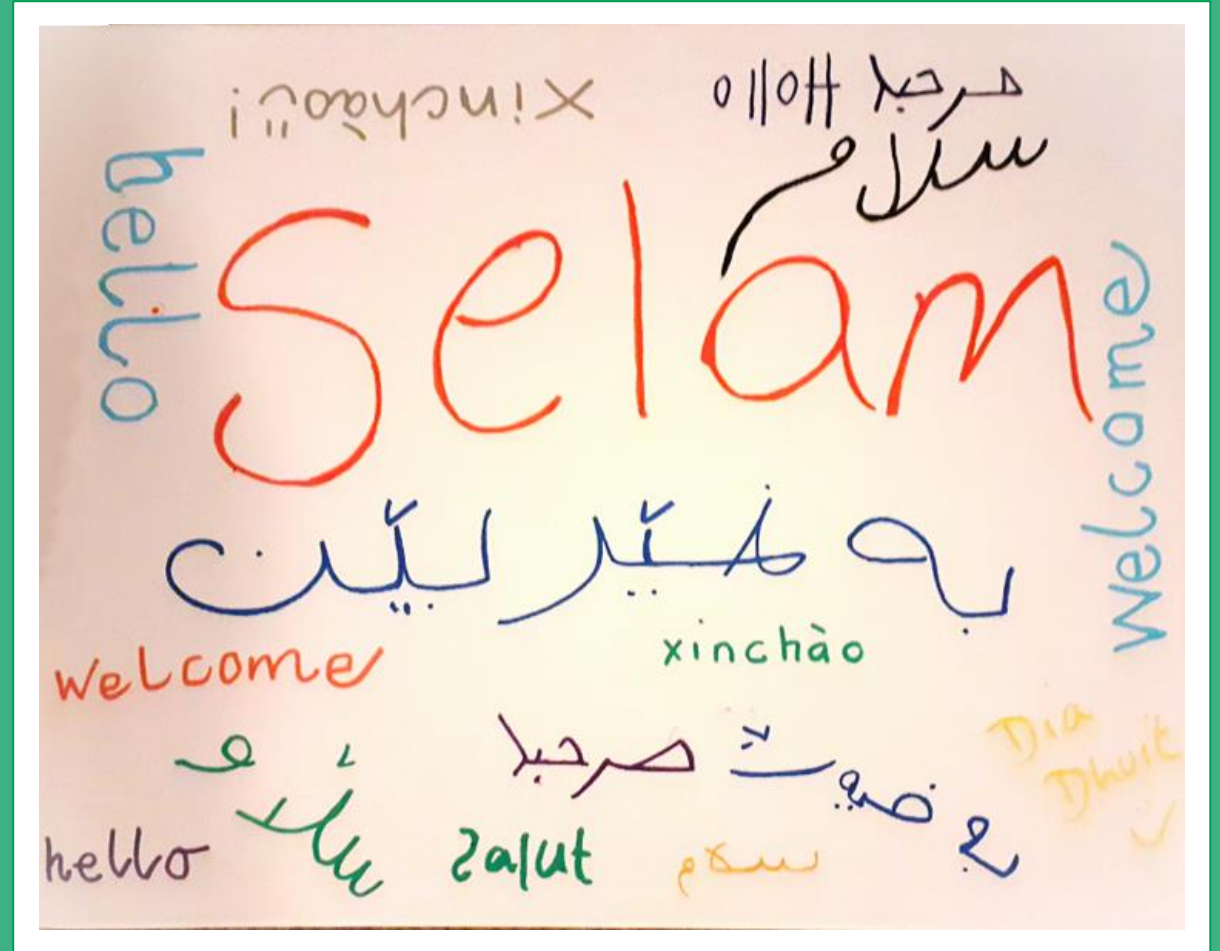 xinchào!
Hello مرحبا
سلام
hello
Selam
welcome
به خێر بێن
xinchào
welcome
مرحبا
Dia
Dhuit
hello
Salut
سلام